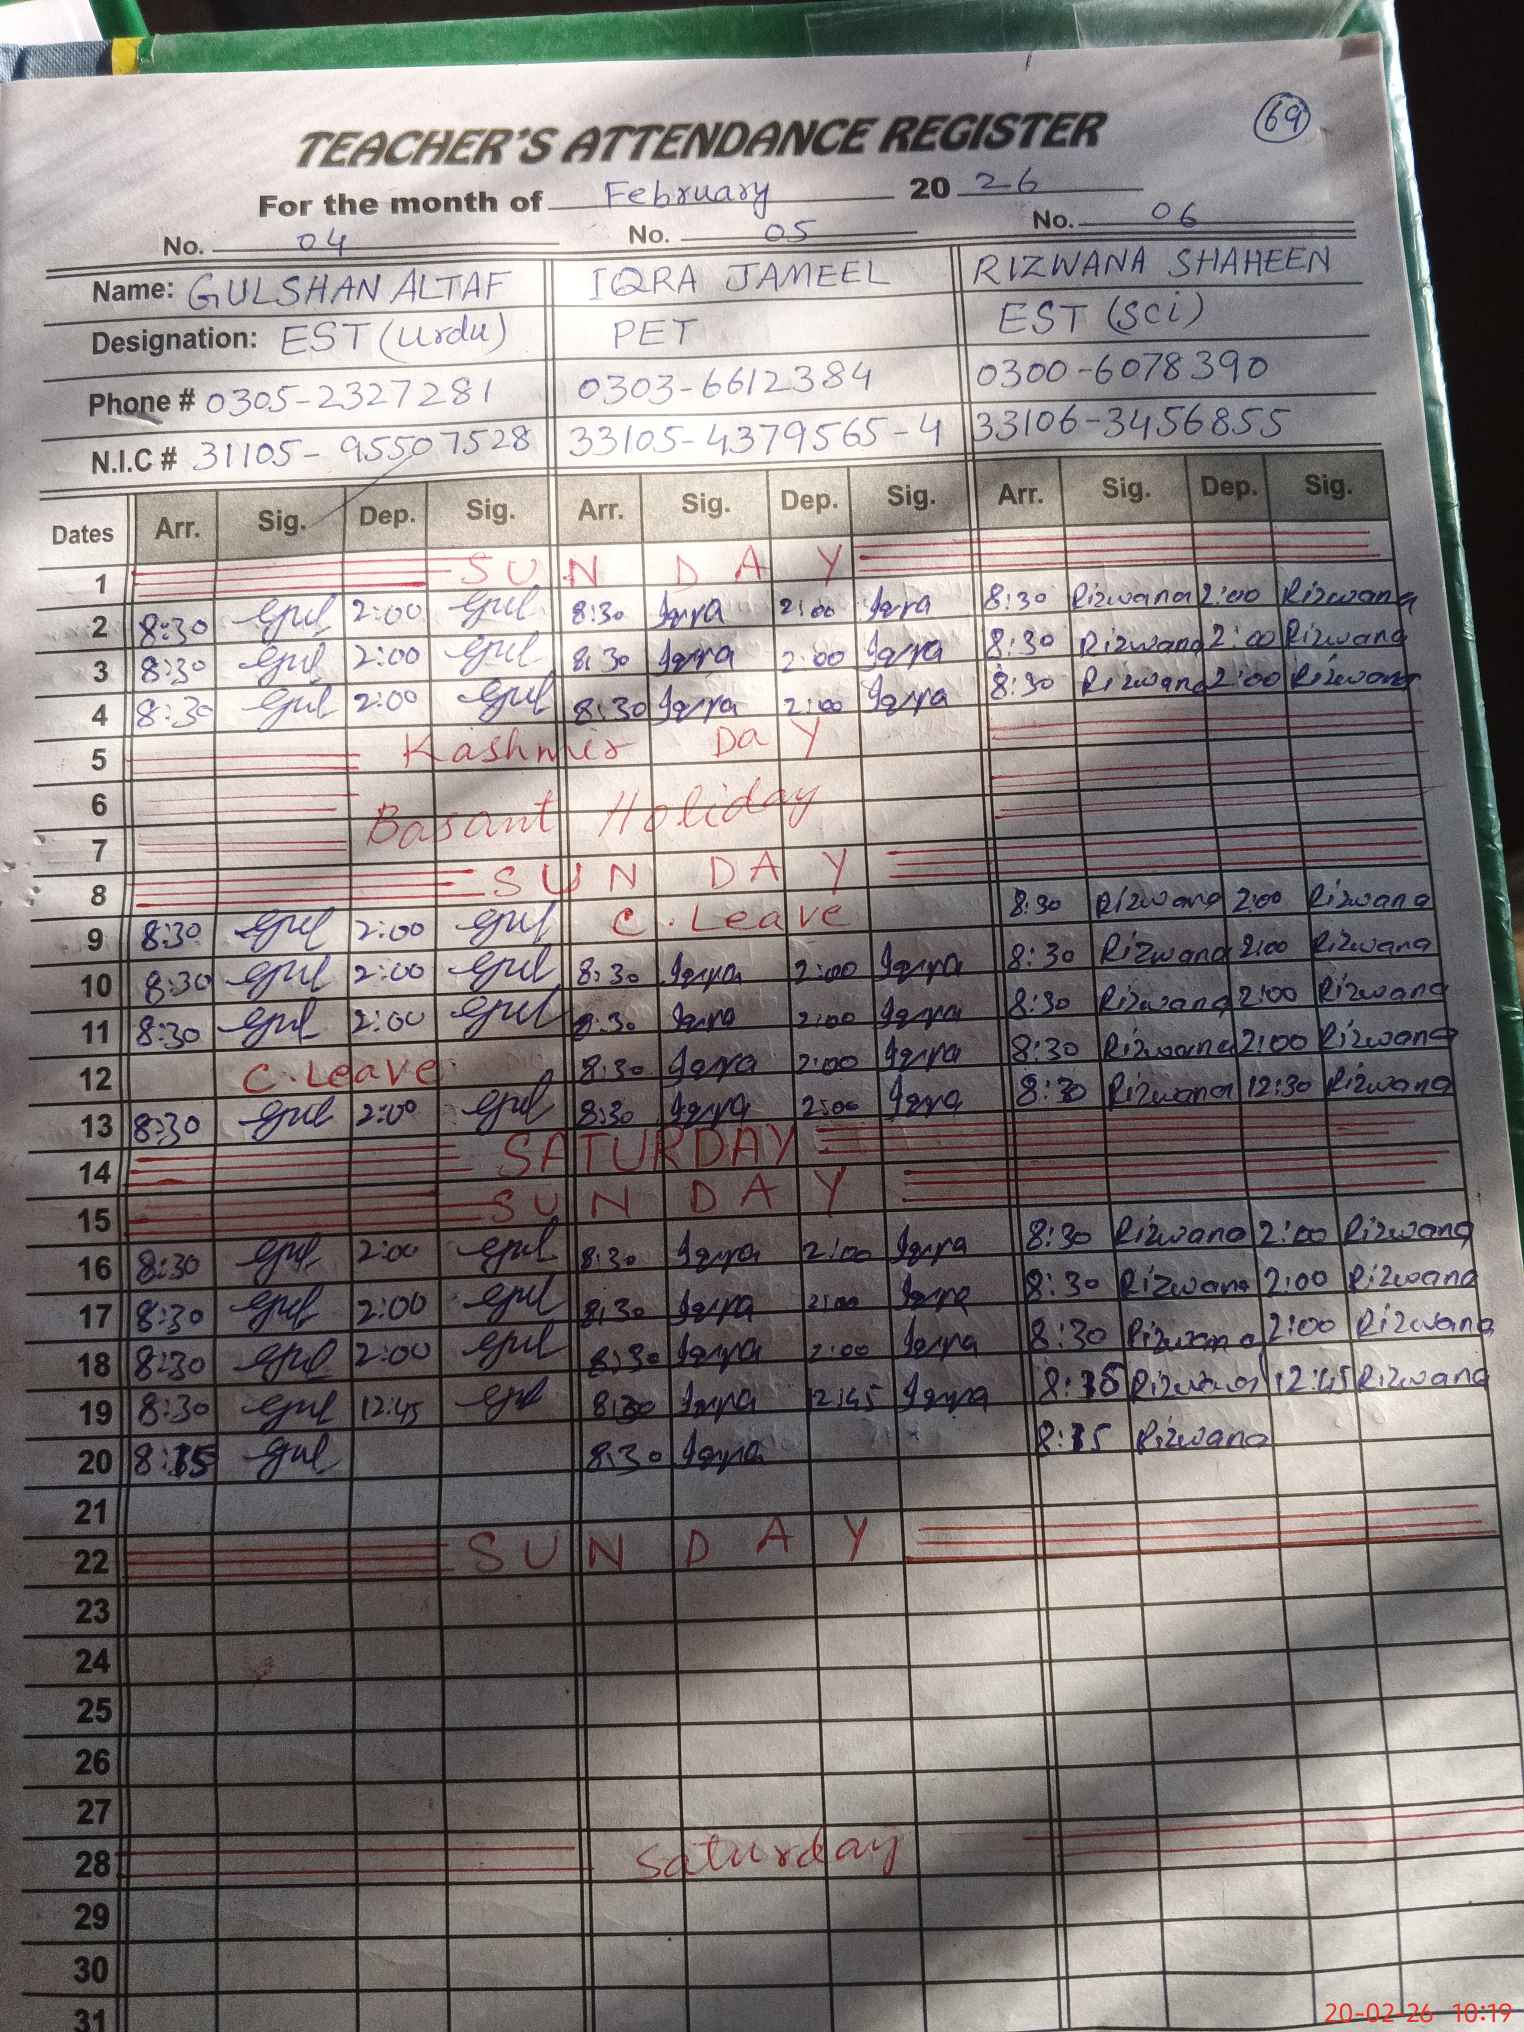 69
TEACHER'S ATTENDANCE REGISTER
For the month of February 20 26
No. 04 No. 05 No. 06
Name: GULSHAN ALTAF IQRA JAMEEL RIZWANA SHAHEEN
Designation: EST (Urdu) PET EST (Sci)
Phone # 0305-2327281 0303-6612384 0300-6078390
N.I.C # 31105-95507528 33105-4379565-4 33106-3456855
Dates Arr. Sig. Dep. Sig. Arr. Sig. Dep. Sig. Arr. Sig. Dep. Sig.
1 SUNDAY
2 8:30 Gul 2:00 Gul 8:30 Iqra 2:00 Iqra 8:30 Rizwana 2:00 Rizwana
3 8:30 Gul 2:00 Gul 8:30 Iqra 2:00 Iqra 8:30 Rizwana 2:00 Rizwana
4 8:30 Gul 2:00 Gul 8:30 Iqra 2:00 Iqra 8:30 Rizwana 2:00 Rizwana
5 Kashmir Day
6 Basant Holiday
7
8 SUNDAY
9 8:30 Gul 2:00 Gul C.Leave 8:30 Rizwana 2:00 Rizwana
10 8:30 Gul 2:00 Gul 8:30 Iqra 2:00 Iqra 8:30 Rizwana 2:00 Rizwana
11 8:30 Gul 2:00 Gul 8:30 Iqra 2:00 Iqra 8:30 Rizwana 2:00 Rizwana
12 C.Leave 8:30 Iqra 2:00 Iqra 8:30 Rizwana 2:00 Rizwana
13 8:30 Gul 2:00 Gul 8:30 Iqra 2:00 Iqra 8:30 Rizwana 12:30 Rizwana
14 SATURDAY
15 SUNDAY
16 8:30 Gul 2:00 Gul 8:30 Iqra 2:00 Iqra 8:30 Rizwana 2:00 Rizwana
17 8:30 Gul 2:00 Gul 8:30 Iqra 2:00 Iqra 8:30 Rizwana 2:00 Rizwana
18 8:30 Gul 2:00 Gul 8:30 Iqra 2:00 Iqra 8:30 Rizwana 2:00 Rizwana
19 8:30 Gul 12:45 Gul 8:30 Iqra 12:45 Iqra 8:15 Rizwana 12:45 Rizwana
20 8:15 Gul 8:30 Iqra 8:15 Rizwana
21
22 SUNDAY
23
24
25
26
27
28 Saturday
29
30
31
20-02-26 10:19